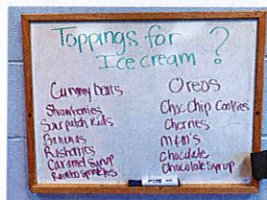 Toppings for ?
Ice cream
Gummy bears
Strawberries
Sour patch Kids
Bananas
Caramel Syrup
Rainbow sprinkles
Oreos
Choc Chip Cookies
Cherries
M&M's
Chocolate
Chocolate Syrup